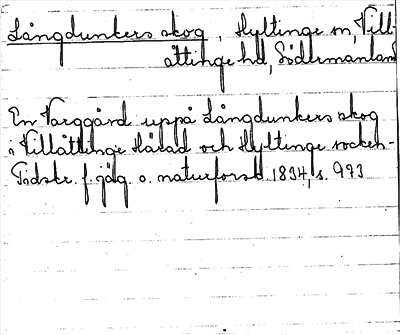 Långdunkers skog, Hyltinge sn, Vill-
åttinge hd, Södermanland
En Varggård uppå Långdunkers skog
i Villåttinge Härad och Hyltinge socken-
Tidskr. f. jäg. o. naturforsk. 1834, s. 973